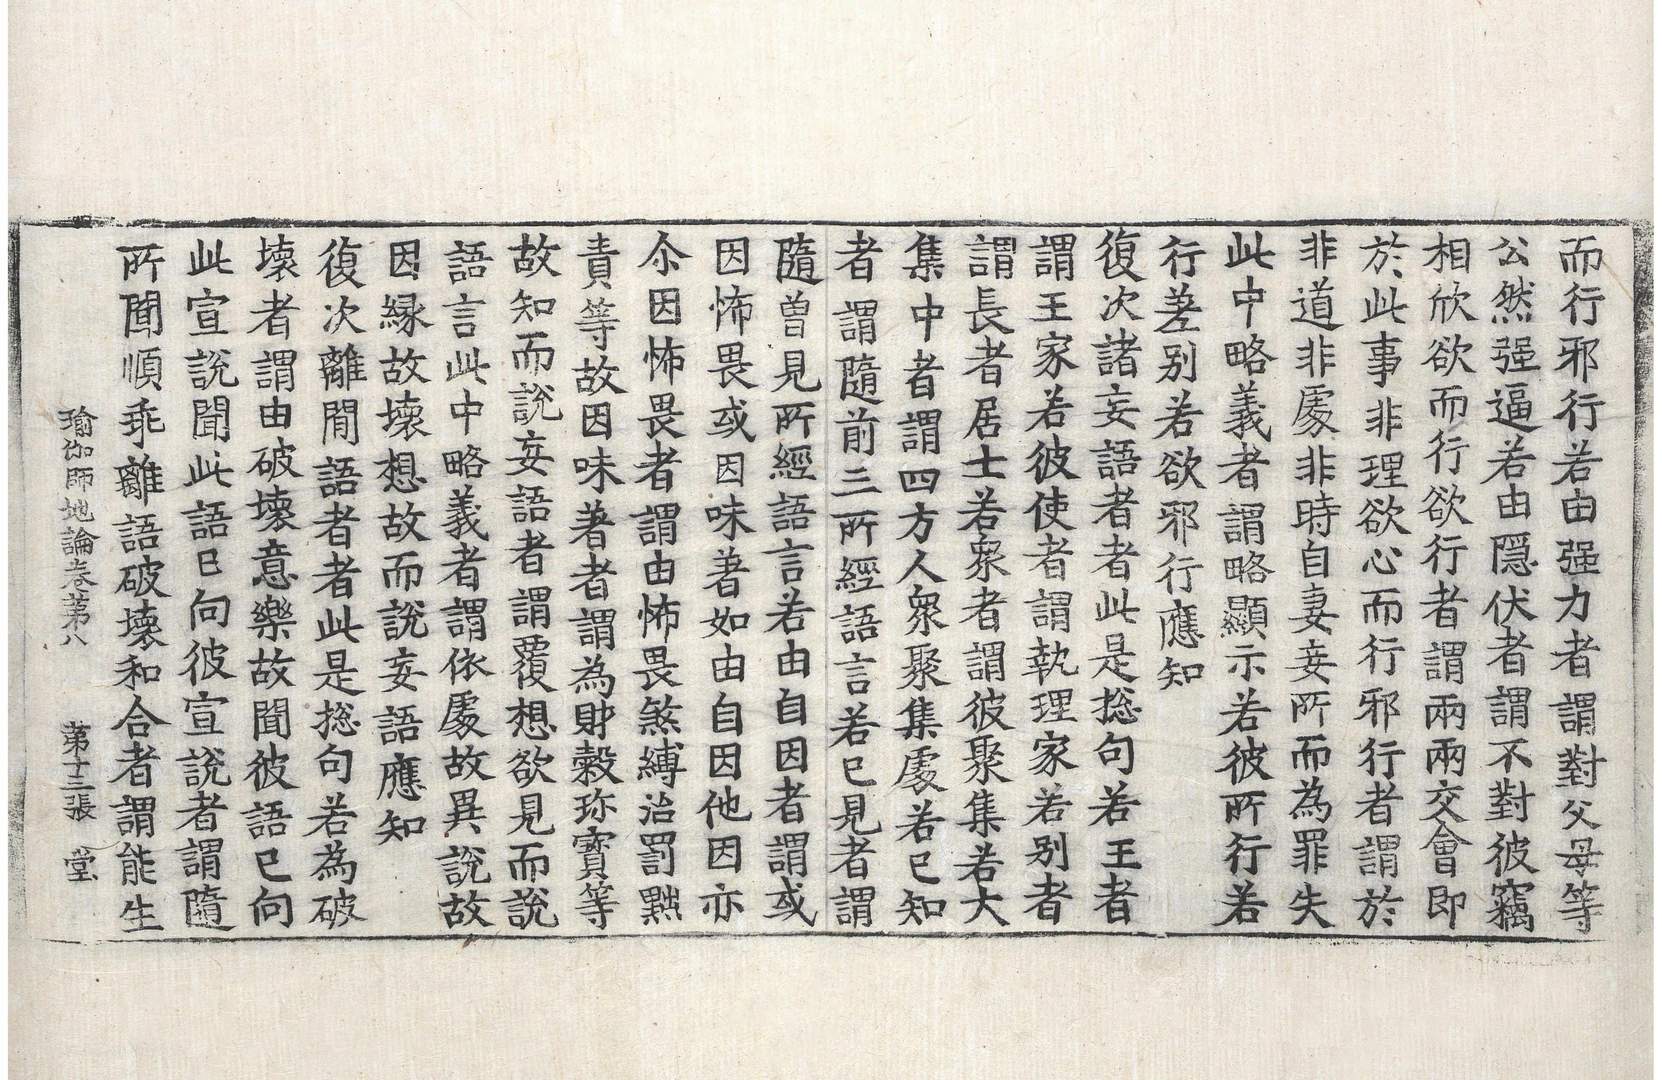 而行邪行若由强力者謂對父母等
公然强逼若由隱伏者謂不對彼竊
相欣欲而行欲行者謂兩兩交會即
於此事非理欲心而行邪行者謂於
非道非處非時自妻妾所而為罪失
此中略義者謂略顯示若彼所行若
行差别若欲邪行應知
復次諸妄語者者此是捴句若王者
謂王家若彼使者謂執理家若别者
謂長者居士若衆者謂彼聚集若大
集中者謂四方人衆聚集處若已知
者謂隨前三所經語言若已見者謂
隨曾見所經語言若由自因者謂或
因怖畏或因味著如由自因他因亦
尒因怖畏者謂由怖畏煞縛治罰黜
責等故因味著者謂為財穀珎寶等
故知而說妄語者謂覆想欲見而說
語言此中略義者謂依處故異說故
因縁故壞想故而說妄語應知
復次離間語者者此是捴句若為破
壞者謂由破壞意樂故聞彼語已向
此宣說聞此語已向彼宣說者謂隨
所聞順乖離語破壞和合者謂能生
瑜伽師地論卷第八 第十三張 堂